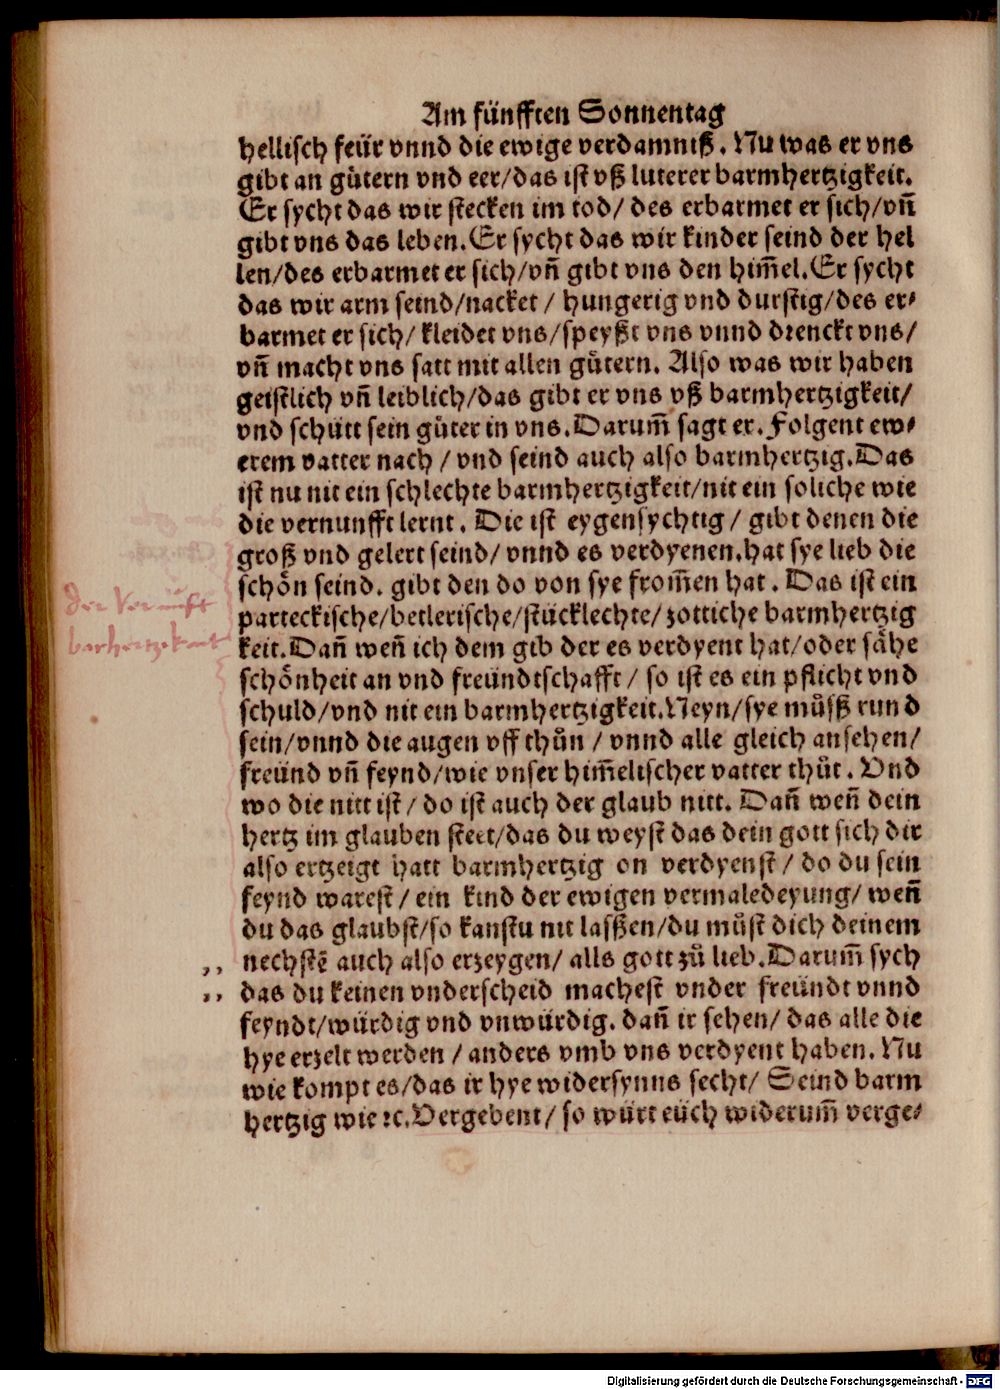 Am fünfften Sonnentag
hellisch feür vnnd die ewige verdamniß. Nu was er vns
gibt an gütern vnd eer/das ist vß luterer barmhertzigkeit.
Er sycht das wir stecken im tod/ des erbarmet er sich/vñ
gibt vns das leben. Er sycht das wir kinder seind der hel
len/des erbarmet er sich/vñ gibt vns den him̃el. Er sycht
das wir arm seind/nacket / hungerig vnd durstig/des er⸗
barmet er sich/ kleidet vns/speyßt vns vnnd drenckt vns/
vñ macht vns satt mit allen gütern. Also was wir haben
geistlich vñ leiblich/das gibt er vns vß barmhertzigkeit/
vnd schütt sein güter in vns. Darum̃ sagt er. Folgent ew⸗
erem vatter nach / vnd seind auch also barmhertzig. Das
ist nu nit ein schlechte barmhertzigkeit/nit ein soliche wie
die vernunfft lernt. Die ist eygensychtig / gibt denen die
groß vnd gelert seind/ vnnd es verdyenen. hat sye lieb die
schön seind. gibt den do von sye from̃en hat. Das ist ein
parteckische/betlerische/stücklechte/ zottiche barmhertzig
keit. Dañ weñ ich dem gib der es verdyent hat/oder sähe
schönheit an vnd freündtschafft / so ist es ein pflicht vnd
schuld/vnd nit ein barmhertzigkeit. Neyn/sye můsß rund
sein/vnnd die augen vff thůn / vnnd alle gleich ansehen/
freünd vñ feynd/wie vnser him̃elischer vatter thůt. Vnd
wo die nitt ist / do ist auch der glaub nitt. Dañ weñ dein
hertz im glauben steet/das du weyst das dein gott sich dir
also ertzeigt hatt barmhertzig on verdyenst / do du sein
feynd warest / ein kind der ewigen vermaledeyung/ weñ
du das glaubst/so kanstu nit lasßen/du můst dich deinem
,, nechstẽ auch also erzeygen/ alls gott zů lieb. Darum̃ sych
,, das du keinen vnderscheid machest vnder freündt vnnd
feyndt/würdig vnd vnwürdig. dañ ir sehen/ das alle die
hye erzelt werden / anders vmb vns verdyent haben. Nu
wie kompt es/das ir hye widersynns secht/ Seind barm
hertzig wie ꝛc. Vergebent/ so würt eüch widerum̃ verge⸗
Der Vernufft
Digitalisierung gefördert durch die Deutsche Forschungsgemeinschaft - DFG